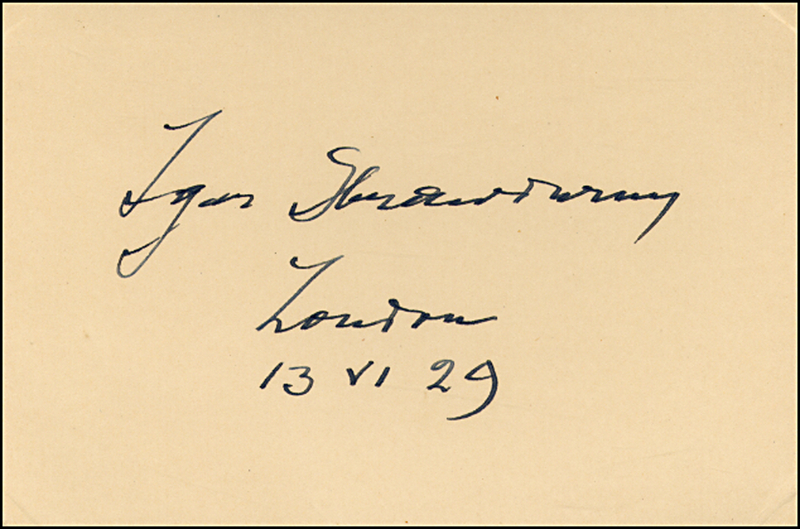 Igor Strawinsky
London
13 VI 29